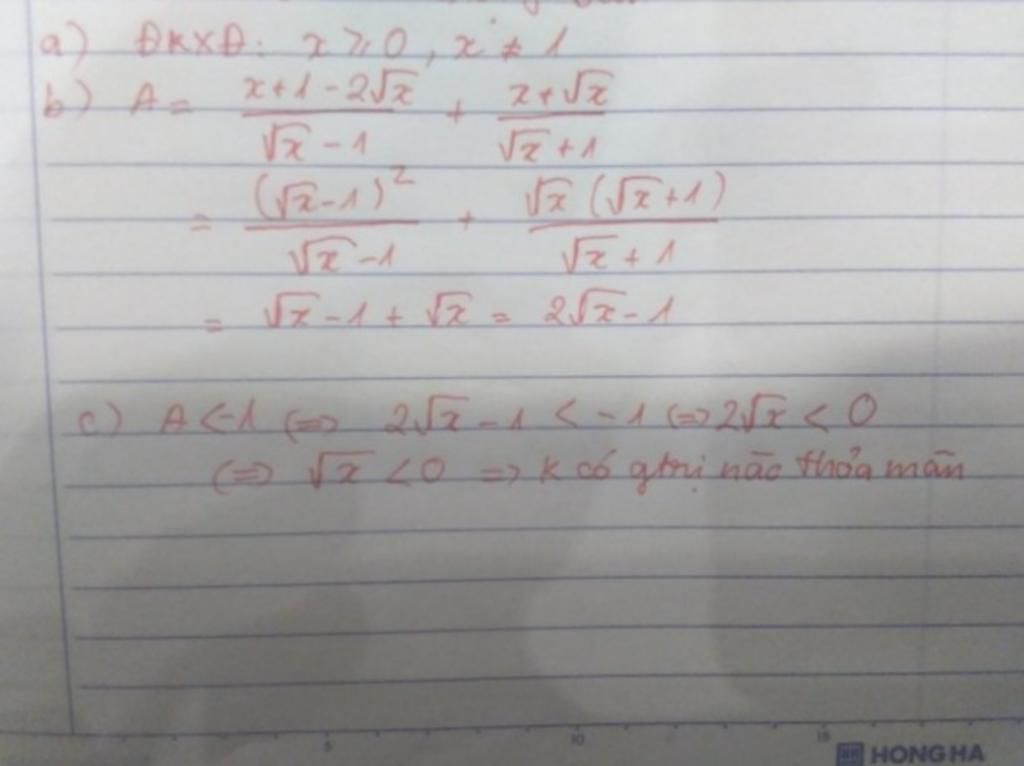 a) ĐKXĐ: x ⩾ 0, x ≠ 1
b) A = (x+1-2√x)/(√x-1) + (x+√x)/(√x+1)
= (√x-1)²/(√x-1) + √x(√x+1)/(√x+1)
= √x-1 + √x = 2√x-1
c) A < -1 (=) 2√x - 1 < -1 (=) 2√x < 0
(=) √x < 0 => k có gtrị nào thỏa mãn
5 10 15
HONG HA